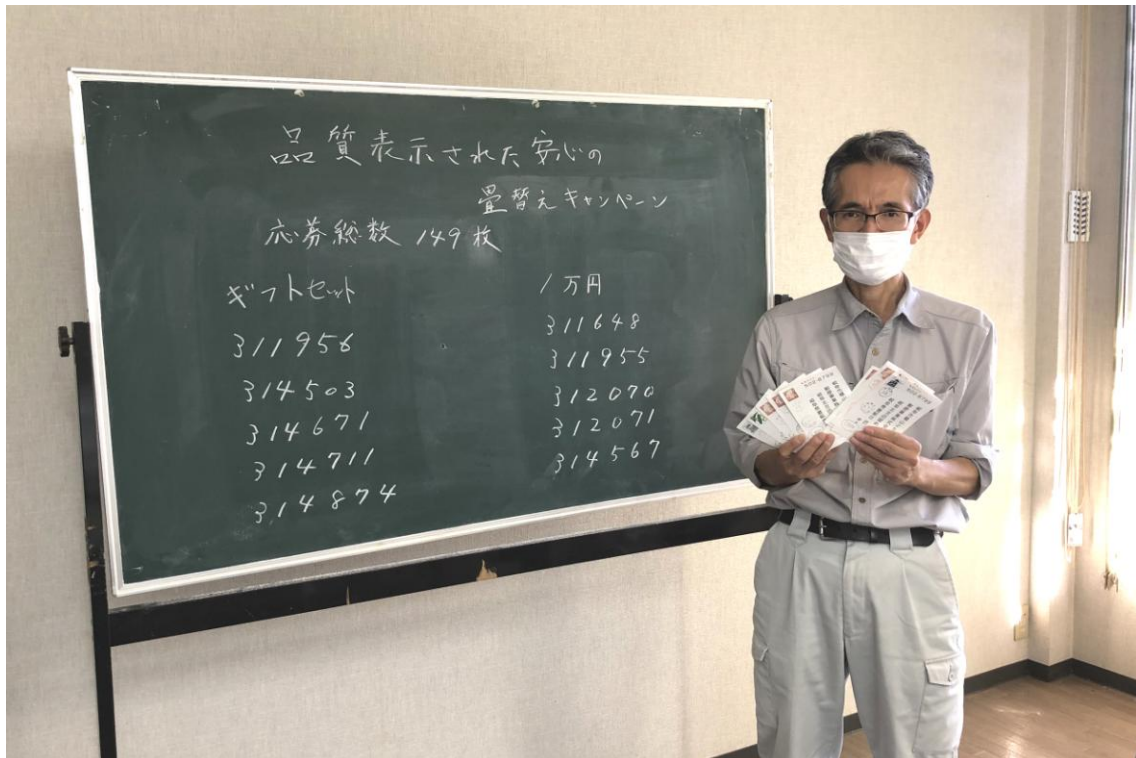 品質表示された安心の
畳替えキャンペーン
応募総数 149枚
ギフトセット
311956
314503
314671
314711
314874
1万円
311648
311955
312070
312071
314567